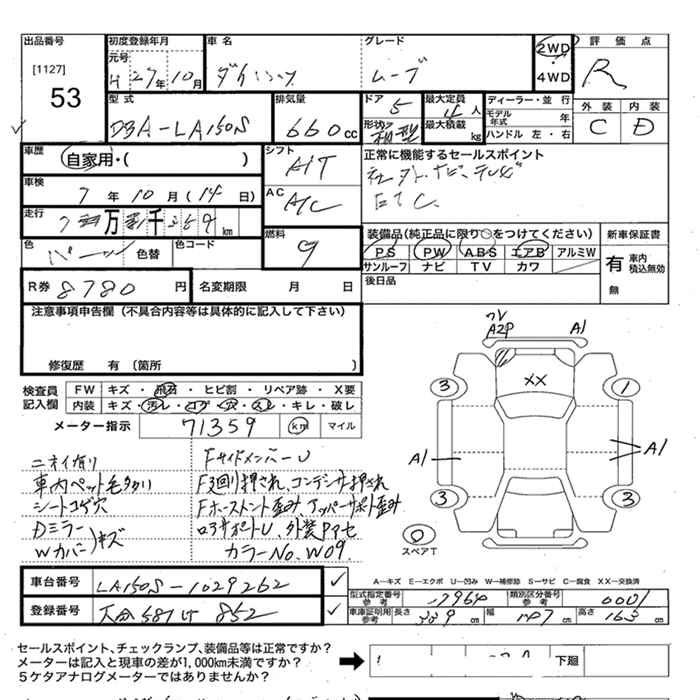 出品番号 初度登録年月 車名 グレード 2WD 評価点
[1127] 元号 4WD R
53 H 27年 10月 ダイハツ ムーブ
型式 排気量 ドア 最大定員 ディーラー・並行 外装 内装
DBA-LA150S 660cc 5 4人 モデル年式 年 C D
形状 最大積載 kg ハンドル 左・右
車歴 シフト 正常に機能するセールスポイント
自家用・( ) A/T 社外ナビ、テレビ
車検 ETC
7年 10月 (14日) AC
走行 A/C
万 千 km 装備品(純正品に限り○をつけてください) 新車保証書
色 色替 色コード 燃料 PS PW ABS エアB アルミW 有 車内積込無効
パール ガ サンルーフ ナビ TV カワ 無
R券 8780円 名変期限 月 日 後日品
注意事項申告欄(不具合内容等は具体的に記入して下さい)
修復歴 有 (箇所 )
A2P A1
XX
3 1
A1 A1
3 3
スペアT
検査員記入欄 FW キズ・飛石・ヒビ割・リペア跡・X要
内装 キズ・汚レ・コゲ・穴・スレ・キレ・破レ
メーター指示 71359 km マイル
ニオイ有り FサイドメンバーU
車内ペット毛多い F廻り押され、コンデンサ押され
シートコゲ穴 Fホースメント歪み、アッパーサポト歪み
Dミラー ロアサポートU、外装Pアセ
Wカバー)キズ カラーNo. W09
A-キズ E-エクボ U-凹み W-補修跡 S-サビ C-腐食 XX-交換済
車台番号 LA150S-1029262
型式指定番号 参考 類別区分番号 参考 0001
登録番号 大分 581 852
車庫証明用 参考 長さ 339cm 幅 147cm 高さ 163cm
セールスポイント、チェックランプ、装備品等は正常ですか?
メーターは記入と現車の差が1,000km未満ですか?
5ケタアナログメーターではありませんか?
下廻